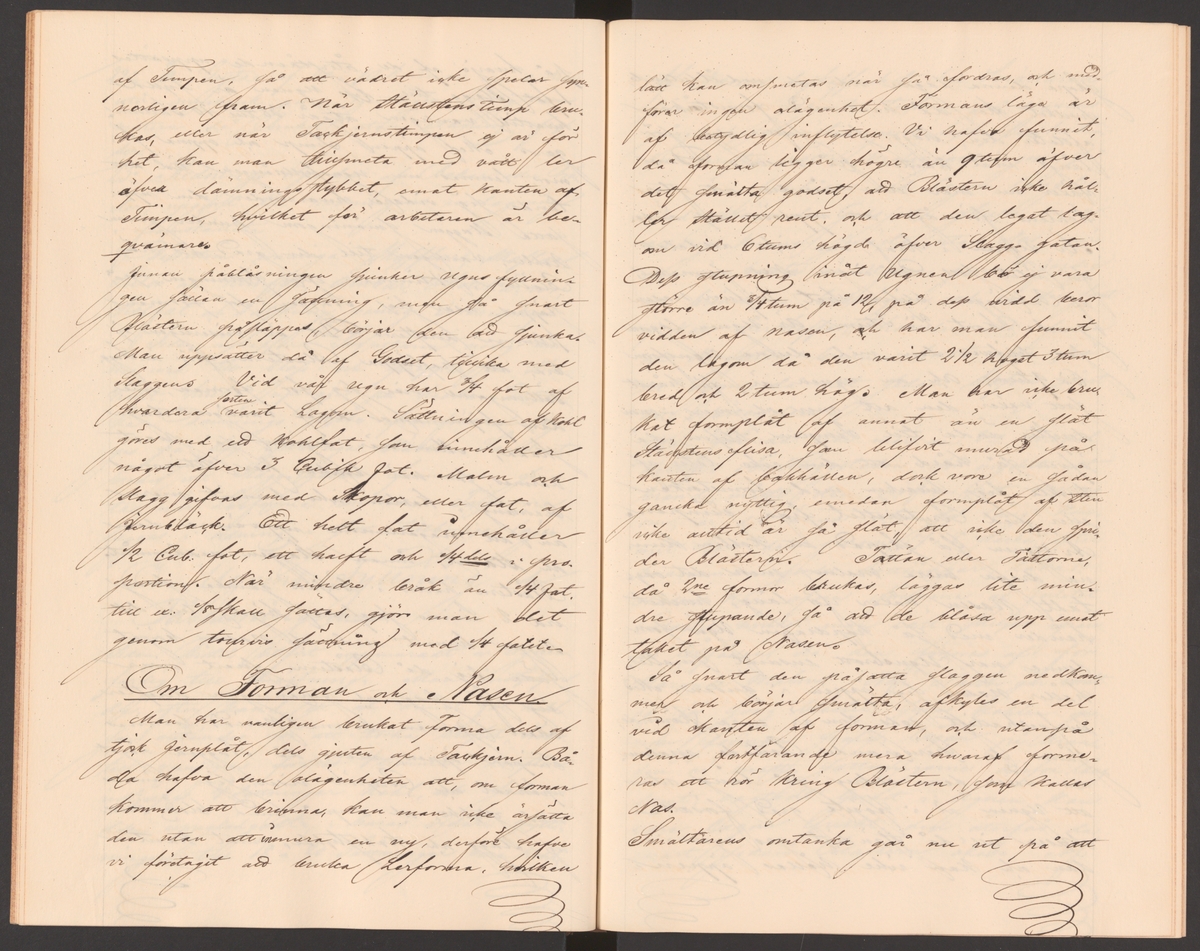 af Timpen, så att vädret icke spelar syn-
nerligen fram. När Ställstens timp bru-
kas, eller när Tackjernstimpen ej är för
het, kan man tillsmeta med vått ler
äfven dämnings stybbet, emot kanten af
Timpen, hvilket för arbetaren är be-
qvämare.
Innan påblåsningen sjunker ugns fyllnin-
gen sällan en Sättning, men så snart
Blästern påsläppes, börjar den att sjunka.
Man uppsätter då af Godset, tillika med
slaggens Vid vår ugn har 3/4 fot af
hvardera varit Lagom. Sättningen af Kohl
göres med ett Kohlfat, som innehåller
något öfver 3 Cubik fot. Malm och
Slagg gifvas med Skopor, eller fat, af
Jernbläck. Ett helt fat innehåller
1/2 Cub. fot, ett halft och 1/4 dels i pro-
portion. När mindre bråk än 1/4 fat,
till ex. 1/8 skall sättas, gjör man det
genom tourvis sättning med 1/4 fatet.
Om Forman och Nasen.
Man har vanligen brukat Forma dels af
tjock jernplåt, dels gjuten af Tackjern. Bå-
da hafva den olägenheten att, om forman
kommer att brinna, kan man icke ärsätta
den utan att inmura en ny, derföre hafve
vi företagit att bruka Lerforma, hvilken
lätt kan omsmetas när så fordras, och med-
förer ingen olägenhet. Formans läge är
af betydlig inflytelse. Vi hafva funnit,
då forman ligger högre än 9 tum öfver
det smälta godset, att Blästern icke hål-
ler stället rent, och att den legat lag-
om vid 6 tums högd öfver Slagg gatan.
Dess stupning inåt Ugnen bö ej vara
större än 3/4 tum på 12, på dess vidd beror
vidden af nasen, och har man funnit
den lagom då den varit 2 1/2 högst 3 tum
bred och 2 tum hög. Man har icke bru-
kat formplåt af annat än en slät
Ställstensflisa, som blifvit murad på
kanten af bakhällen, dock vore en sådan
ganska nyttig, emedan formplåt af sten
icke alltid är så slät, att icke den spri-
der Blästern. Tättan eller Tättorna,
då 2ne formor brukas, läggas lite min-
dre stupande, så att de blåsa upp emot
taket på Nasen.
Så snart den påsatta slaggen nedkom-
mer och börjar smälta, afkyles en del
vid Kanten af forman, och utanpå
denna fortfarande mera hvaraf forme-
ras ett rör kring Blästern, som kallas
Nas.
Smältarens omtanka går nu ut på att